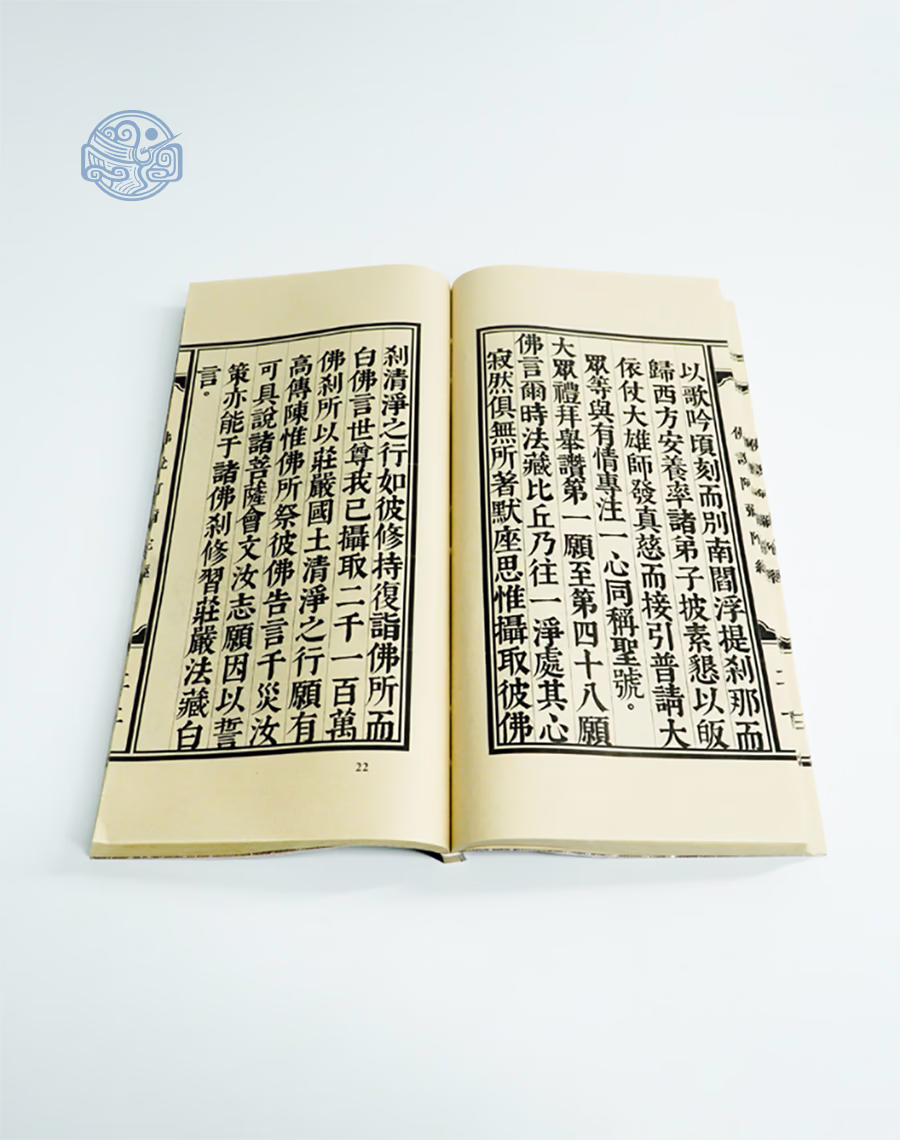 以歌吟頃刻而別南閻浮提刹那而
歸西方安養率諸弟子披素懇以皈
依仗大雄師發真慈而接引普請大
眾等與有情專注一心同稱聖號。
大眾禮拜舉讚第一願至第四十八願
佛言爾時法藏比丘乃往一淨處其心
寂然俱無所著默座思惟攝取彼佛
刹清淨之行如彼修持復詣佛所而
白佛言世尊我已攝取二千一百萬
佛刹所以莊嚴國土清淨之行願有
高傳陳惟佛所祭彼佛告言千災汝
可具說諸菩薩會文汝志願因以誓
策亦能于諸佛刹修習莊嚴法藏白
言。
22